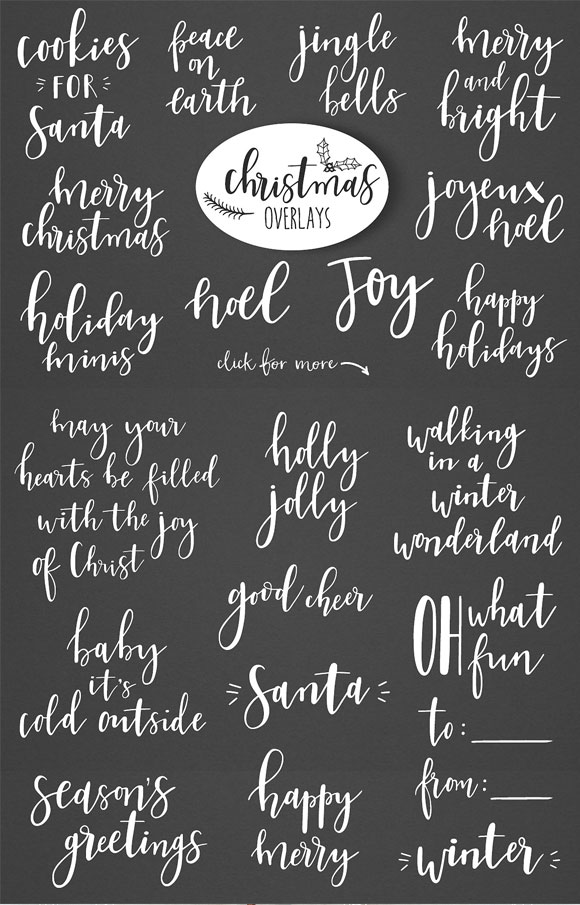 cookies
FOR
Santa
peace
on
earth
jingle
bells
merry
and
bright
merry
christmas
christmas
OVERLAYS
joyeux
noel
holiday
minis
noel
Joy
happy
holidays
click for more
may your
hearts be filled
with the joy
of Christ
holly
jolly
walking
in a
winter
wonderland
good cheer
baby
it's
cold outside
Santa
OH what
fun
to:
from:
season's
greetings
happy
merry
winter